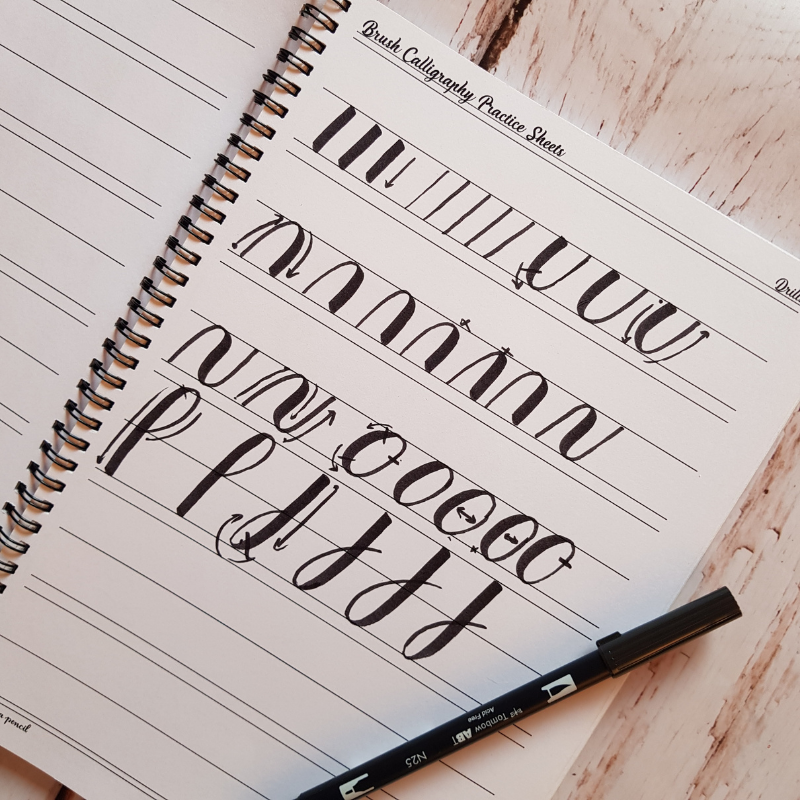 Brush Calligraphy Practice Sheets
pencil
Tombow ABT
Acid Free
N25